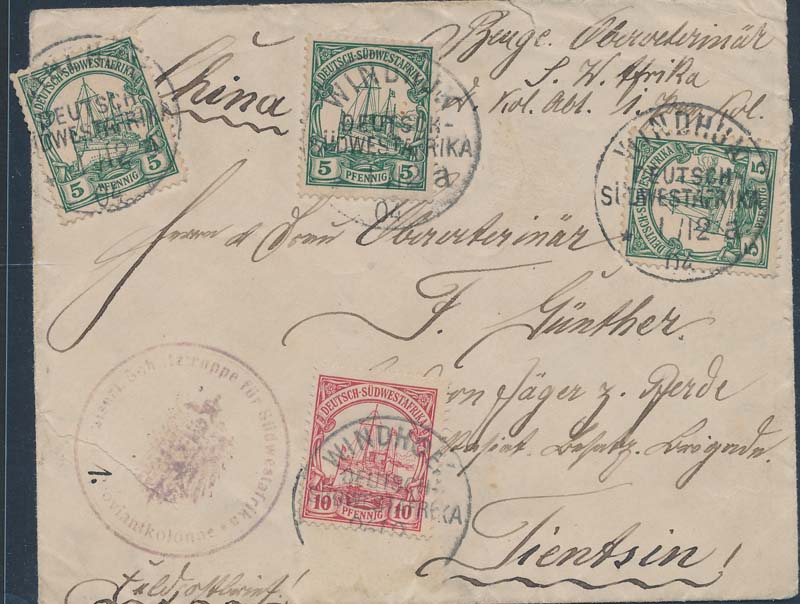 China
Oberveterinär
S. W. Afrika
Kol. Abt.
Kol.
DEUTSCH-SÜDWESTAFRIKA
5 PFENNIG 5
DEUTSCH-
SÜDWESTAFRIKA
/12 a
DEUTSCH-SÜDWESTAFRIKA
5 PFENNIG 5
WINDHUK
DEUTSCH-
SÜDWESTAFRIKA
a
04
DEUTSCH-SÜDWESTAFRIKA
5 PFENNIG 5
WINDHUK
DEUTSCH-
SÜDWESTAFRIKA
1/12 a
04
Herrn
Oberveterinär
F. Günther.
Jäger z. Pferde
Besatz. Brigade.
Tientsin!
DEUTSCH-SÜDWESTAFRIKA
10 PFENNIG 10
WINDHUK
DEUTSCH-
SÜDWESTAFRIKA
Kaiserl. Schutztruppe für Südwestafrika
1. Proviantkolonne
Feldpostbrief!